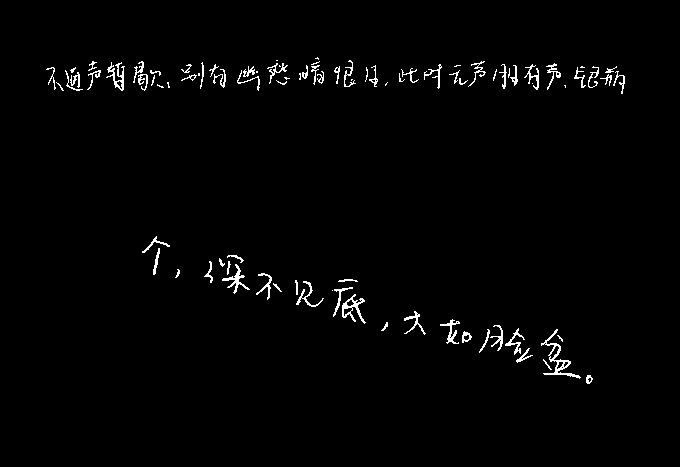 不通声暂歇、别有幽愁暗恨生,此时无声胜有声、银瓶
个,深不见底,大如脸盆。